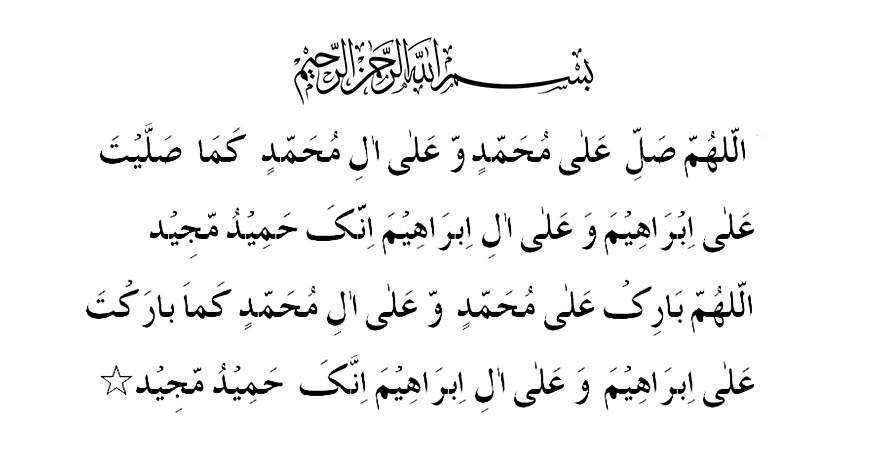 بسم الله الرحمن الرحيم
الّلهُمّ صَلِّ عَلٰی مُحَمّدٍ وّ عَلٰی اٰلِ مُحَمّدٍ کَمَا صَلَّیْتَ
عَلٰی اِبْرَاهِیْمَ وَ عَلٰی اٰلِ اِبرَاهِیْمَ اِنّکَ حَمِیْدٌ مّجِیْد
الّلهُمّ بَارِکْ عَلٰی مُحَمّدٍ وّ عَلٰی اٰلِ مُحَمّدٍ کَماَ بارَکْتَ
عَلٰی اِبرَاهِیْمَ وَ عَلٰی اٰلِ اِبرَاهِیْمَ اِنَّکَ حَمِیْدٌ مّجِیْد☆